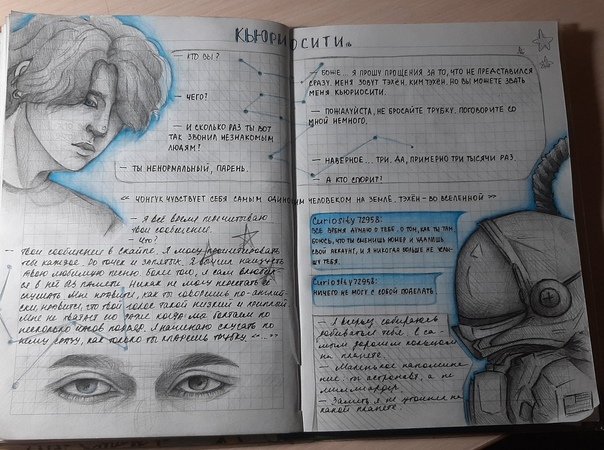 КЬЮРИОСИТИ
— КТО ВЫ?
— ЧЕГО?
— И СКОЛЬКО РАЗ ТЫ ВОТ
ТАК ЗВОНИЛ НЕЗНАКОМЫМ
ЛЮДЯМ?
— ТЫ НЕНОРМАЛЬНЫЙ, ПАРЕНЬ.
— БОЖЕ... Я ПРОШУ ПРОЩЕНИЯ ЗА ТО, ЧТО НЕ ПРЕДСТАВИЛСЯ
СРАЗУ. МЕНЯ ЗОВУТ ТЭХЁН. КИМ ТЭХЁН. НО ВЫ МОЖЕТЕ ЗВАТЬ
МЕНЯ КЬЮРИОСИТИ.
— ПОЖАЛУЙСТА, НЕ БРОСАЙТЕ ТРУБКУ. ПОГОВОРИТЕ СО
МНОЙ НЕМНОГО.
— НАВЕРНОЕ... ТРИ. ДА, ПРИМЕРНО ТРИ ТЫСЯЧИ РАЗ.
— А КТО СПОРИТ?
« ЧОНГУК ЧУВСТВУЕТ СЕБЯ САМЫМ ОДИНОКИМ ЧЕЛОВЕКОМ НА ЗЕМЛЕ. ТЭХЁН - ВО ВСЕЛЕННОЙ »
— Я всё время перечитываю
твои сообщения.
— Что?
— Твои сообщения в скайпе. Я могу процитировать
те каждое. До точек и запятых. Я выучил наизусть
твою любимую песню. Более того, я сам влюбился
в неё без памяти. Никак не могу перестать её
слушать. Мне нравится, как ты говоришь по-английски,
нравится, что твой голос такой низкий и хриплый
Мне не важно но даже когда мы болтаем по
несколько часов подряд. Я начинаю скучать по
нему сразу, как только ты кладёшь трубку
Curiosity 72958:
ВСЁ ВРЕМЯ ДУМАЮ О ТЕБЕ. О ТОМ, КАК ТЫ ТАМ
БОЮСЬ, ЧТО ТЫ СМЕНИШЬ НОМЕР И УДАЛИШЬ
СВОЙ АККАУНТ, И Я НИКОГДА БОЛЬШЕ НЕ УСЛЫ-
ШУ ТЕБЯ.
Curiosity 72958:
НИЧЕГО НЕ МОГУ С СОБОЙ ПОДЕЛАТЬ.
— Я вчера собираюсь
тебе. С са-
мым дорогим кольцом
на планете.
— Маленькое напомина-
ние: ты астронавт, а не
миллиардер.
— Заметь, я не уточнил на
какой планете.